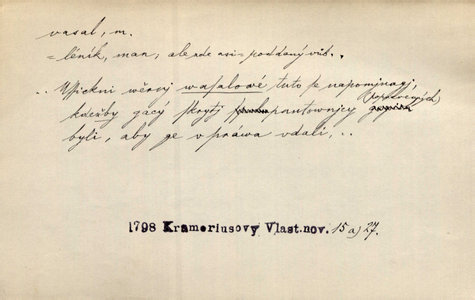 vasal, m.
= léník, man, ale zde asi = poddaný vůb..
.. Wssickni wěrnj wasalowé tuto se napomjnagj,
(poprawených)
kdežby gacý skrytj spuntownjcy
byli, aby ge v práwa vdali, ..
1798 Krameriusovy Vlast.nov. 15 a) 27.